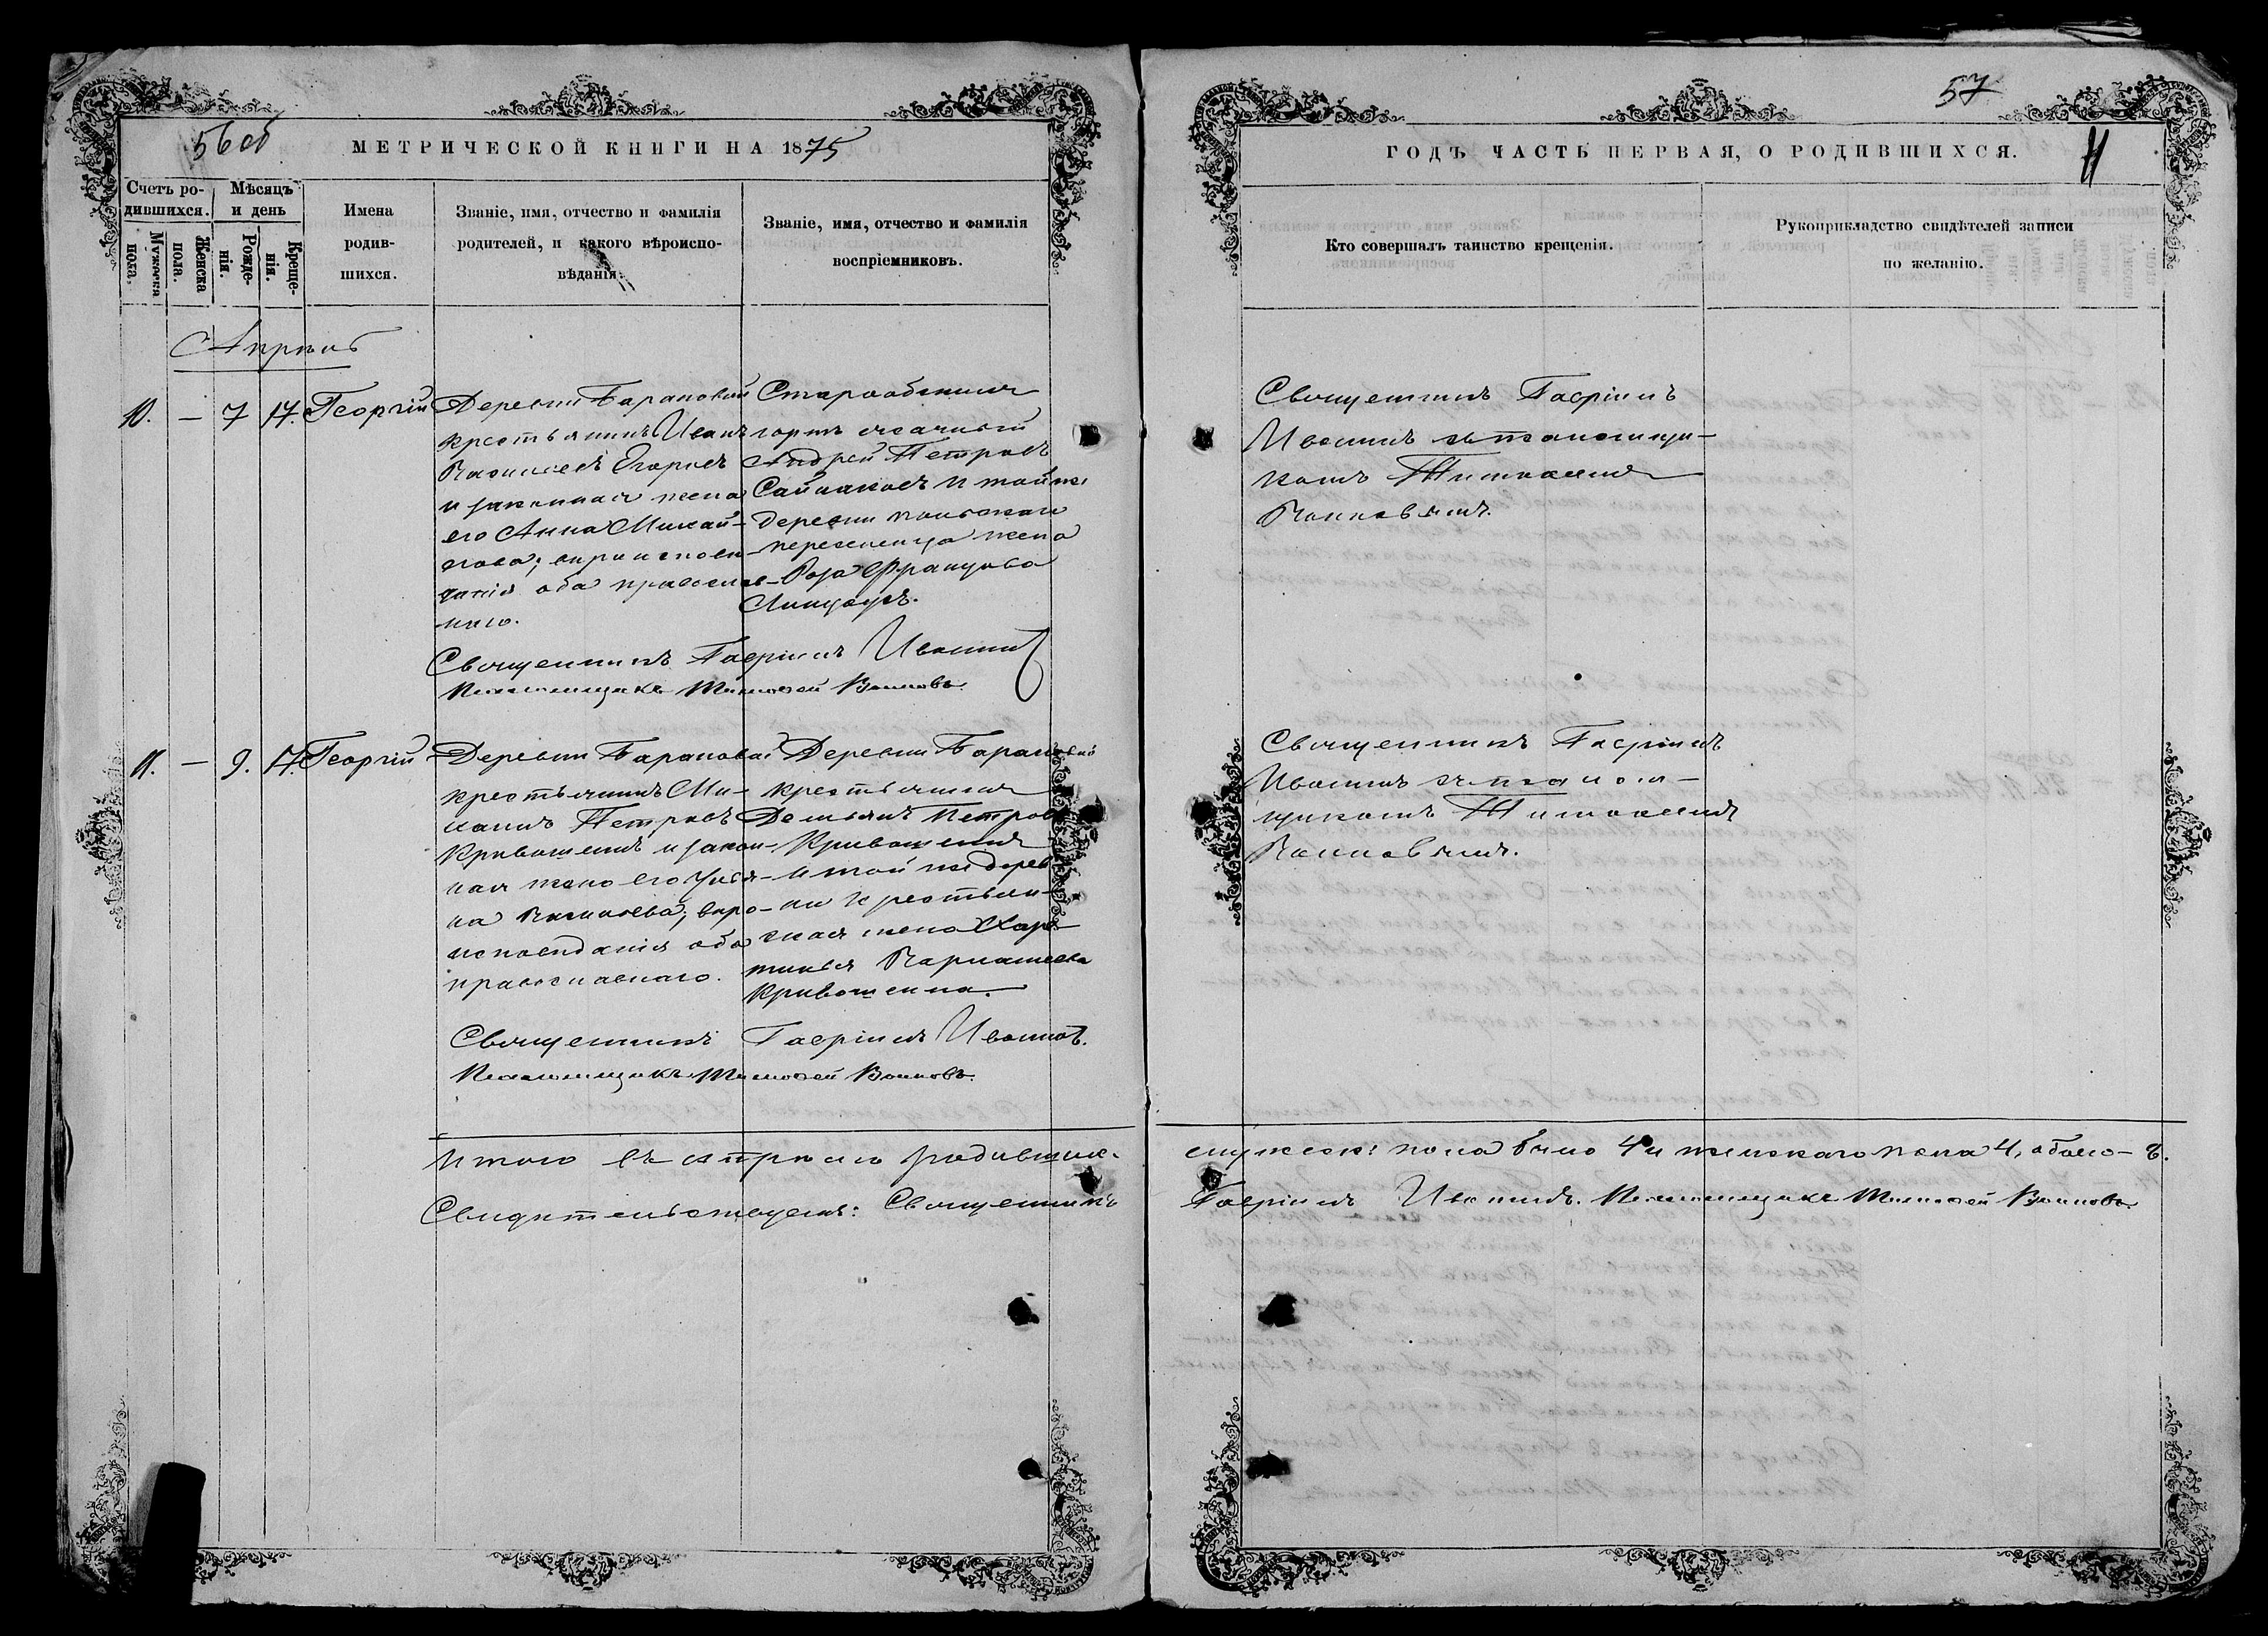 56 об
МЕТРИЧЕСКОЙ КНИГИ НА 1875
Счетъ ро-
дившихся.
Мужеска
пола.
Женска
пола.
Мѣсяцъ
и день
Рожде-
нія.
Креще-
нія.
Имена
родив-
шихся.
Званіе, имя, отчество и фамилія
родителей, и какого вѣроиспо-
вѣданія.
Званіе, имя, отчество и фамилія
воспріемниковъ.
Апрѣль
10. — 7 17. Георгій
Деревни Барановой
крестьянинъ Иванъ
Васильевъ Егоровъ
и законная жена
его Анна Михай-
лова; вѣроисповѣ-
данія оба православ-
наго.
горнъ
Андрей Петровъ
и той же
деревни
переселенца жена
Роза Францова
Священникъ Гавріилъ Ивановъ
Псаломщикъ Тимофей Воиновъ.
11. — 9. 17. Георгій
Деревни Барановой
крестьянинъ Ми-
хаилъ Петровъ
Кривошеинъ и закон-
ная жена его Улья-
на Васильева; вѣро-
исповѣданія оба
православнаго.
Деревни Барановой
крестьянинъ
Демьянъ Петровъ
Кривошеинъ
и той же дерев-
ни крестьян-
ская жена Хари-
тинья
Кривошеина.
Священникъ Гавріилъ Ивановъ.
Псаломщикъ Тимофей Воиновъ.
Итого въ апрѣлѣ родивших.
Свидѣтельствуемъ: Священникъ
57
ГОДЪ ЧАСТЬ ПЕРВАЯ, О РОДИВШИХСЯ.
11
Кто совершалъ таинство крещенія.
Рукоприкладство свидѣтелей записи
по желанію.
Священникъ Гавріилъ
Ивановъ съ псаломщи-
комъ Тимофеемъ
Воиновымъ.
Священникъ Гавріилъ
Ивановъ съ псалом-
щикомъ Тимофеемъ
Воиновымъ.
мужеска пола было 4 и женскаго пола 4, обоего — 8.
Гавріилъ Ивановъ. Псаломщикъ Тимофей Воиновъ.